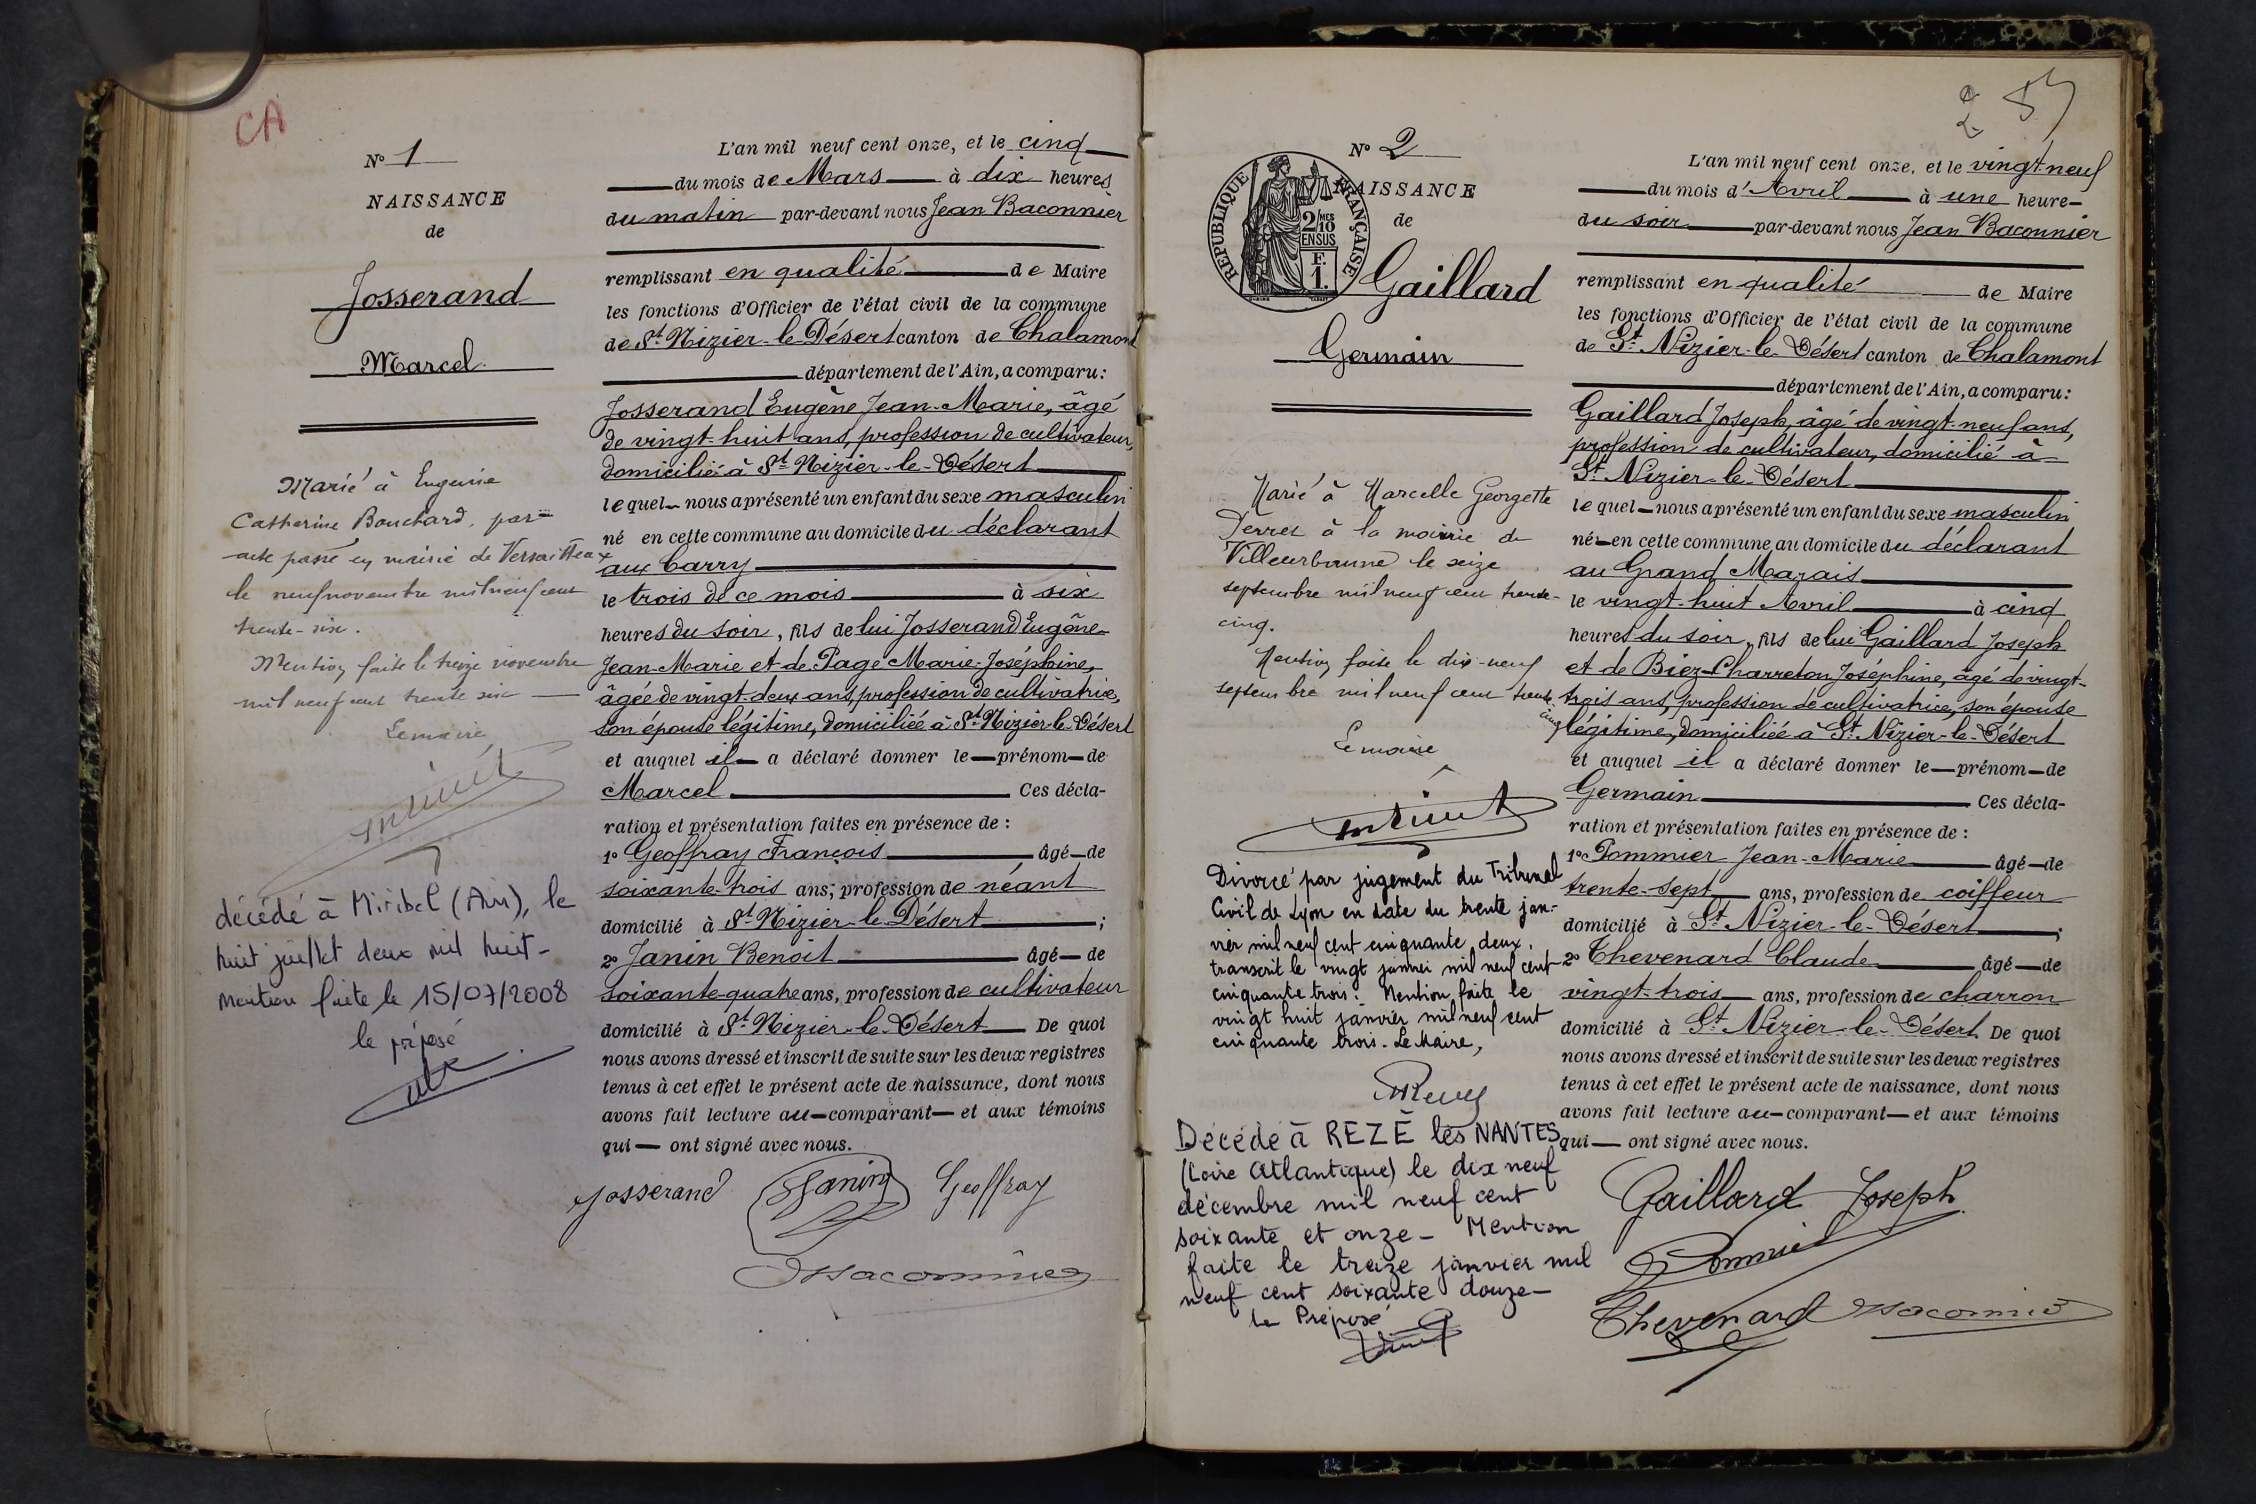 CA
N° 1
NAISSANCE
de
Josserand
Marcel
Marié à Eugenie
Catherine Bouchard, par
acte passé en mairie de Versailleux
le neuf novembre mil neuf cent
trente-six.
Mention faite le treize novembre
mil neuf cent trente six
Le maire,
décédé à Miribel (Ain), le
huit juillet deux mil huit-
Mention faite le 15/07/2008
le préposé
L'an mil neuf cent onze, et le cinq
du mois de Mars à dix heures
du matin par-devant nous Jean Baconnier
remplissant en qualité de Maire
les fonctions d'Officier de l'état civil de la commune
de St Nizier-le-Désert canton de Chalamont
département de l'Ain, a comparu:
Josserand Eugène Jean-Marie, âgé
de vingt-huit ans, profession de cultivateur,
domicilié à St Nizier-le-Désert
lequel nous a présenté un enfant du sexe masculin
né en cette commune au domicile du déclarant
aux Carry
le trois de ce mois à six
heures du soir, fils de lui Josserand Eugène
Jean-Marie et de Page Marie-Joséphine,
âgée de vingt-deux ans, profession de cultivatrice,
son épouse légitime, domiciliée à St Nizier-le-Désert
et auquel il a déclaré donner le prénom de
Marcel Ces décla-
ration et présentation faites en présence de :
1° Geoffray François âgé de
soixante-trois ans; profession de néant
domicilié à St Nizier-le-Désert ;
2° Janin Benoit âgé de
soixante-quatre ans, profession de cultivateur
domicilié à St Nizier-le-Désert De quoi
nous avons dressé et inscrit de suite sur les deux registres
tenus à cet effet le présent acte de naissance, dont nous
avons fait lecture au comparant et aux témoins
qui ont signé avec nous.
Josserand Janin Geoffray
Baconnier
2
N° 2
NAISSANCE
de
RÉPUBLIQUE FRANÇAISE
2/10MES
EN SUS
F.
1.
Gaillard
Germain
Marié à Marcelle Georgette
Perret à la mairie de
Villeurbanne le seize
septembre mil neuf cent trente-
cinq.
Mention faite le dix-neuf
septembre mil neuf cent trente
cinq
Le maire
Divorcé par jugement du Tribunal
Civil de Lyon en date du trente jan-
vier mil neuf cent cinquante deux.
transcrit le vingt janvier mil neuf cent
cinquante trois. Mention faite le
vingt huit janvier mil neuf cent
cinquante trois. Le Maire,
Décédé à REZÉ les NANTES
(Loire Atlantique) le dix neuf
décembre mil neuf cent
soixante et onze - Mention
faite le treize janvier mil
neuf cent soixante douze -
Le Préposé
L'an mil neuf cent onze, et le vingt-neuf
du mois d'Avril à une heure
du soir par-devant nous Jean Baconnier
remplissant en qualité de Maire
les fonctions d'Officier de l'état civil de la commune
de St Nizier-le-Désert canton de Chalamont
département de l'Ain, a comparu:
Gaillard Joseph, âgé de vingt-neuf ans,
profession de cultivateur, domicilié à
St Nizier-le-Désert
lequel nous a présenté un enfant du sexe masculin
né en cette commune au domicile du déclarant
au Grand Marais
le vingt-huit Avril à cinq
heures du soir, fils de lui Gaillard Joseph
et de Biez-Charreton Joséphine, âgé de vingt-
trois ans, profession de cultivatrice, son épouse
légitime, domiciliée à St Nizier-le-Désert
et auquel il a déclaré donner le prénom de
Germain Ces décla-
ration et présentation faites en présence de :
1° Pommier Jean-Marie âgé de
trente-sept ans, profession de coiffeur
domicilié à St Nizier-le-Désert ;
2° Thevenard Claude âgé de
vingt-trois ans, profession de charron
domicilié à St Nizier-le-Désert. De quoi
nous avons dressé et inscrit de suite sur les deux registres
tenus à cet effet le présent acte de naissance, dont nous
avons fait lecture au comparant et aux témoins
qui ont signé avec nous.
Gaillard Joseph
Pommier
Thevenard Baconnier